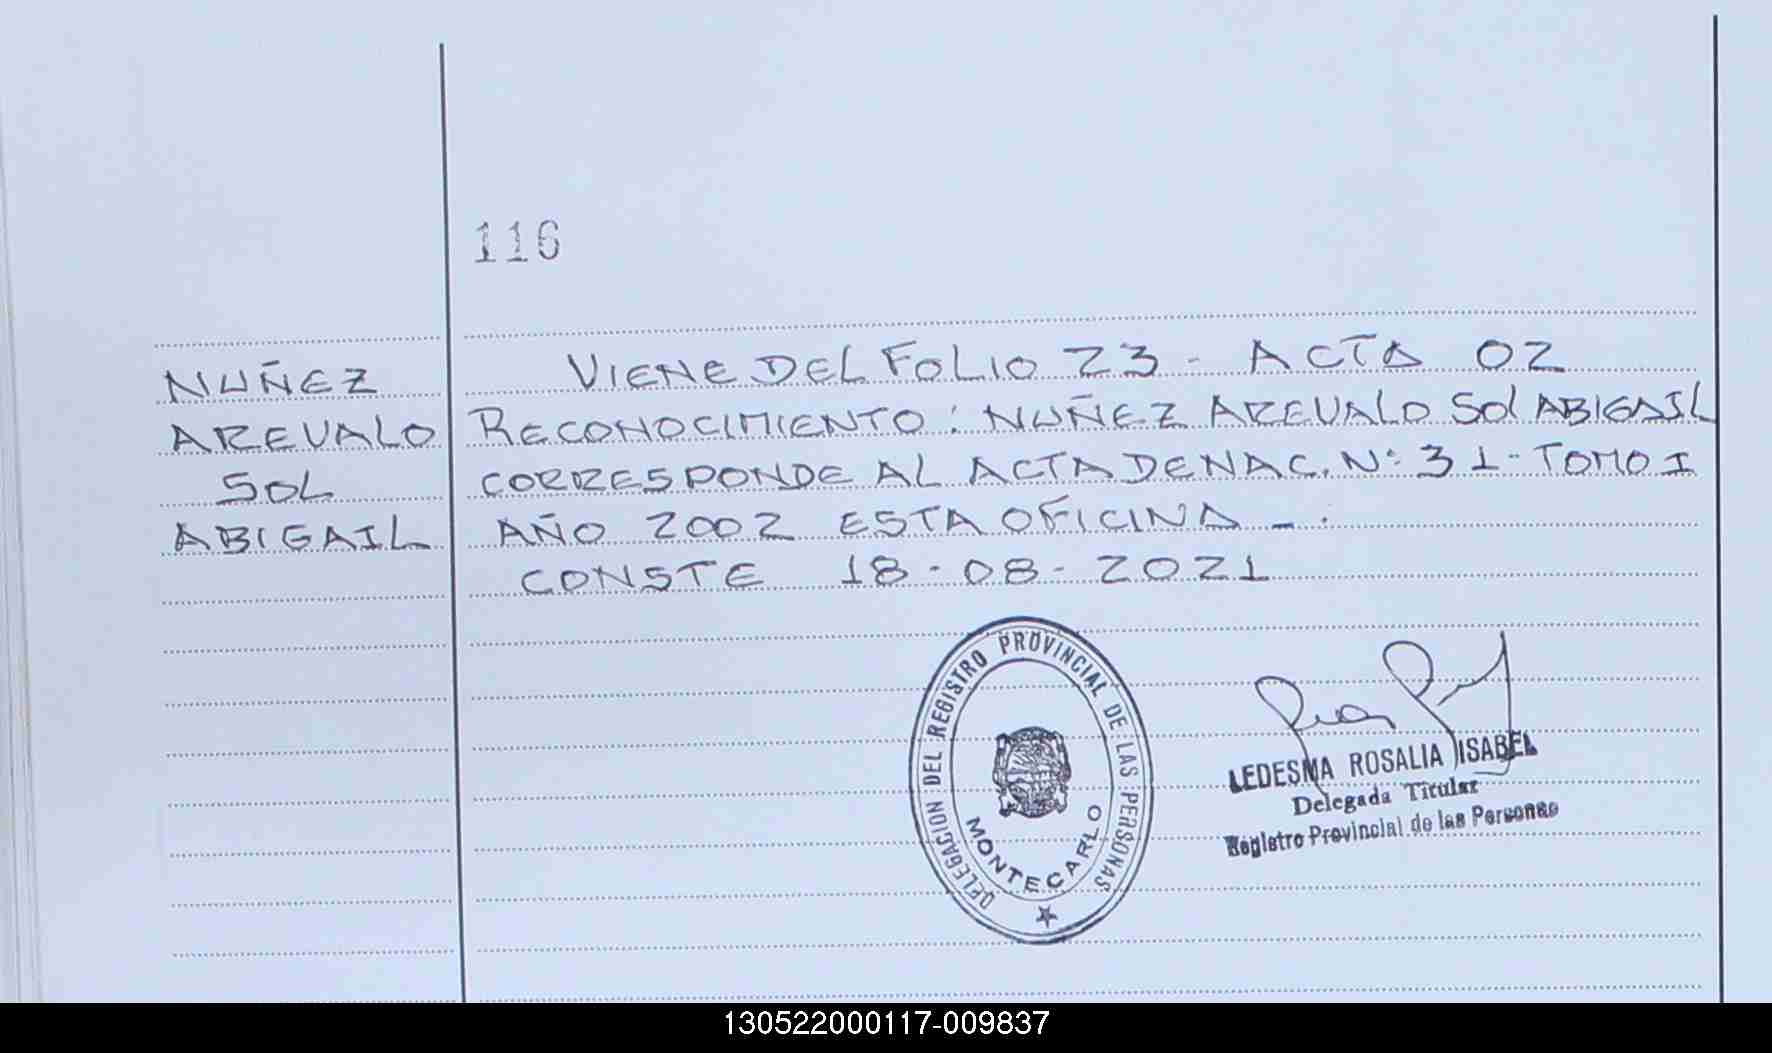 116
NUÑEZ
AREVALO
SOL
ABIGAIL
VIENE DEL FOLIO 23 - ACTA 02
RECONOCIMIENTO: NUÑEZ AREVALO SOL ABIGAIL
CORRESPONDE AL ACTA DE NAC. Nº 31 - TOMO I
AÑO 2002 ESTA OFICINA -.
CONSTE 18-08-2021
DELEGACION DEL REGISTRO PROVINCIAL DE LAS PERSONAS
MONTECARLO
LEDESMA ROSALIA ISABEL
Delegada Titular
Registro Provincial de las Personas
130522000117-009837